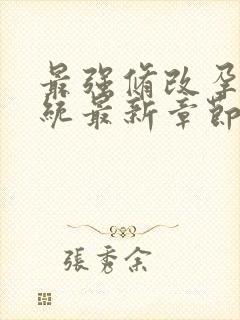 最强修改孕
统最新章節
張秀余